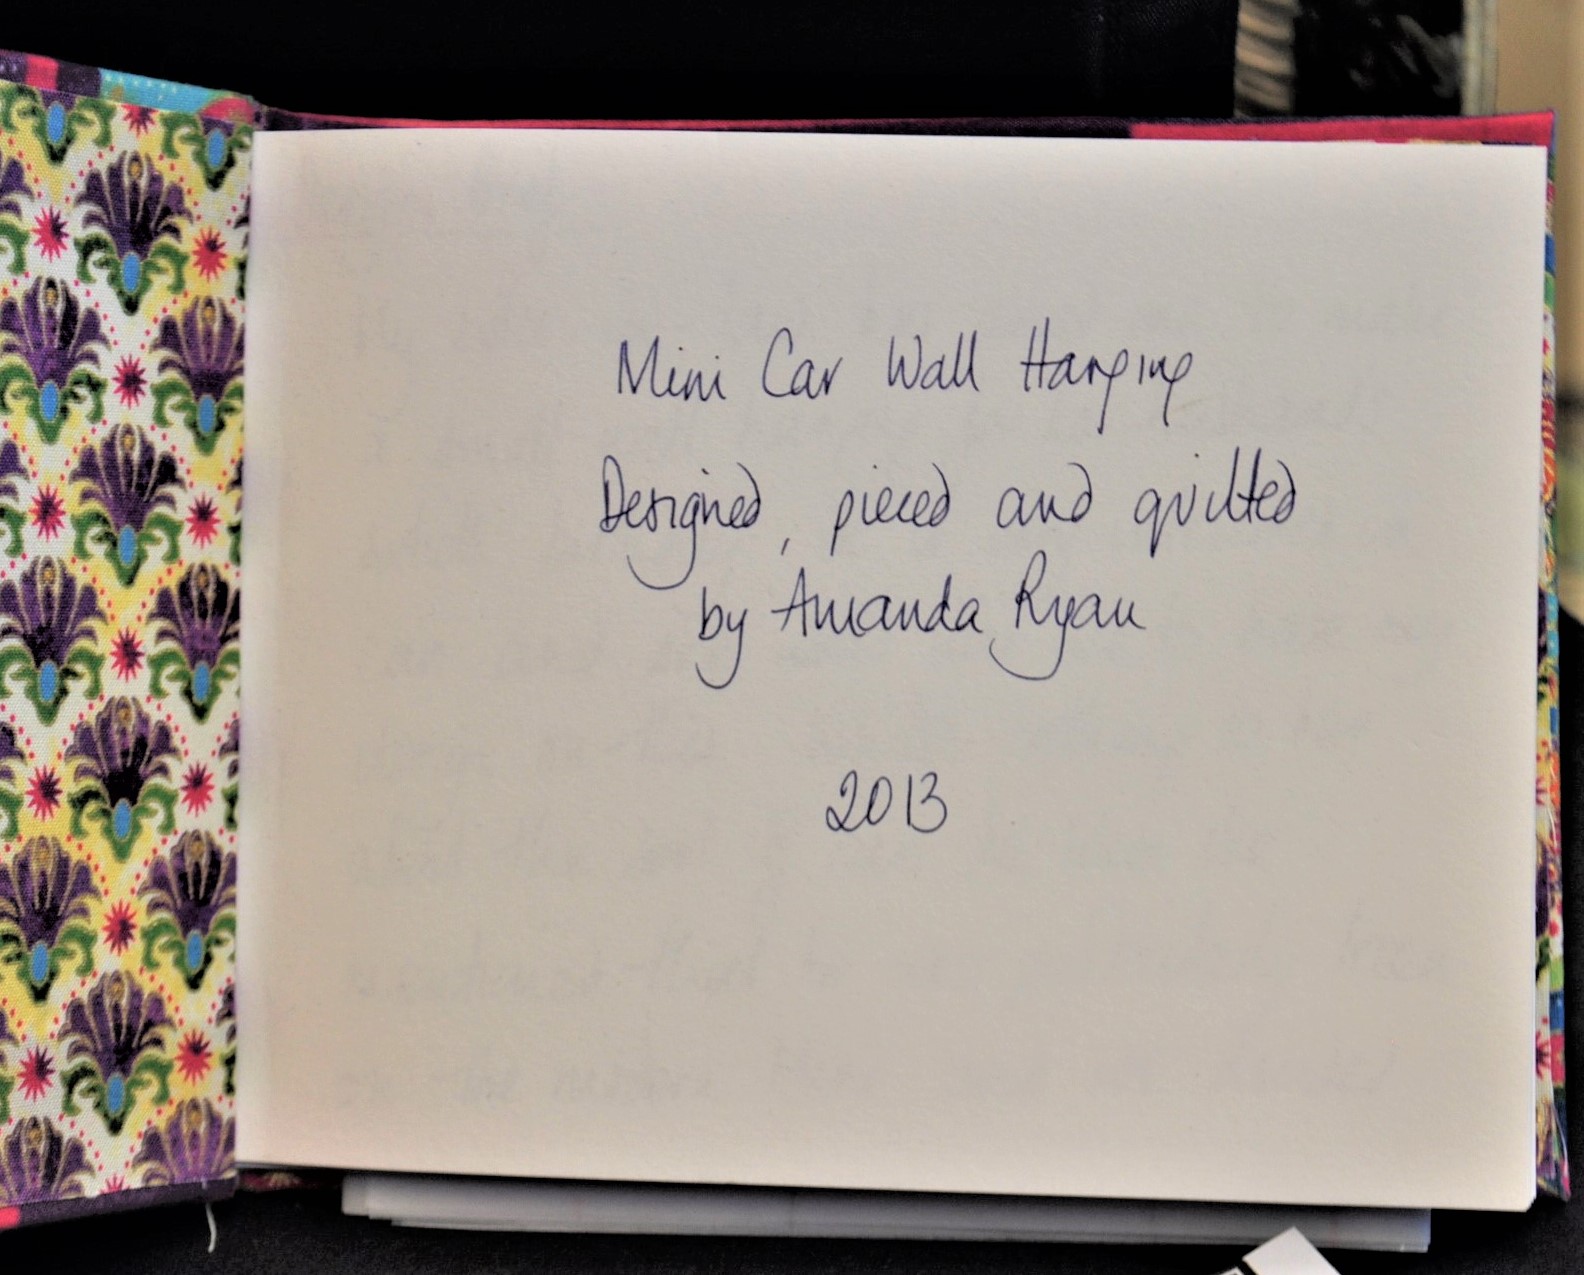 Mini Car Wall Hanging
Designed, pieced and quilted
by Amanda Ryan
2013